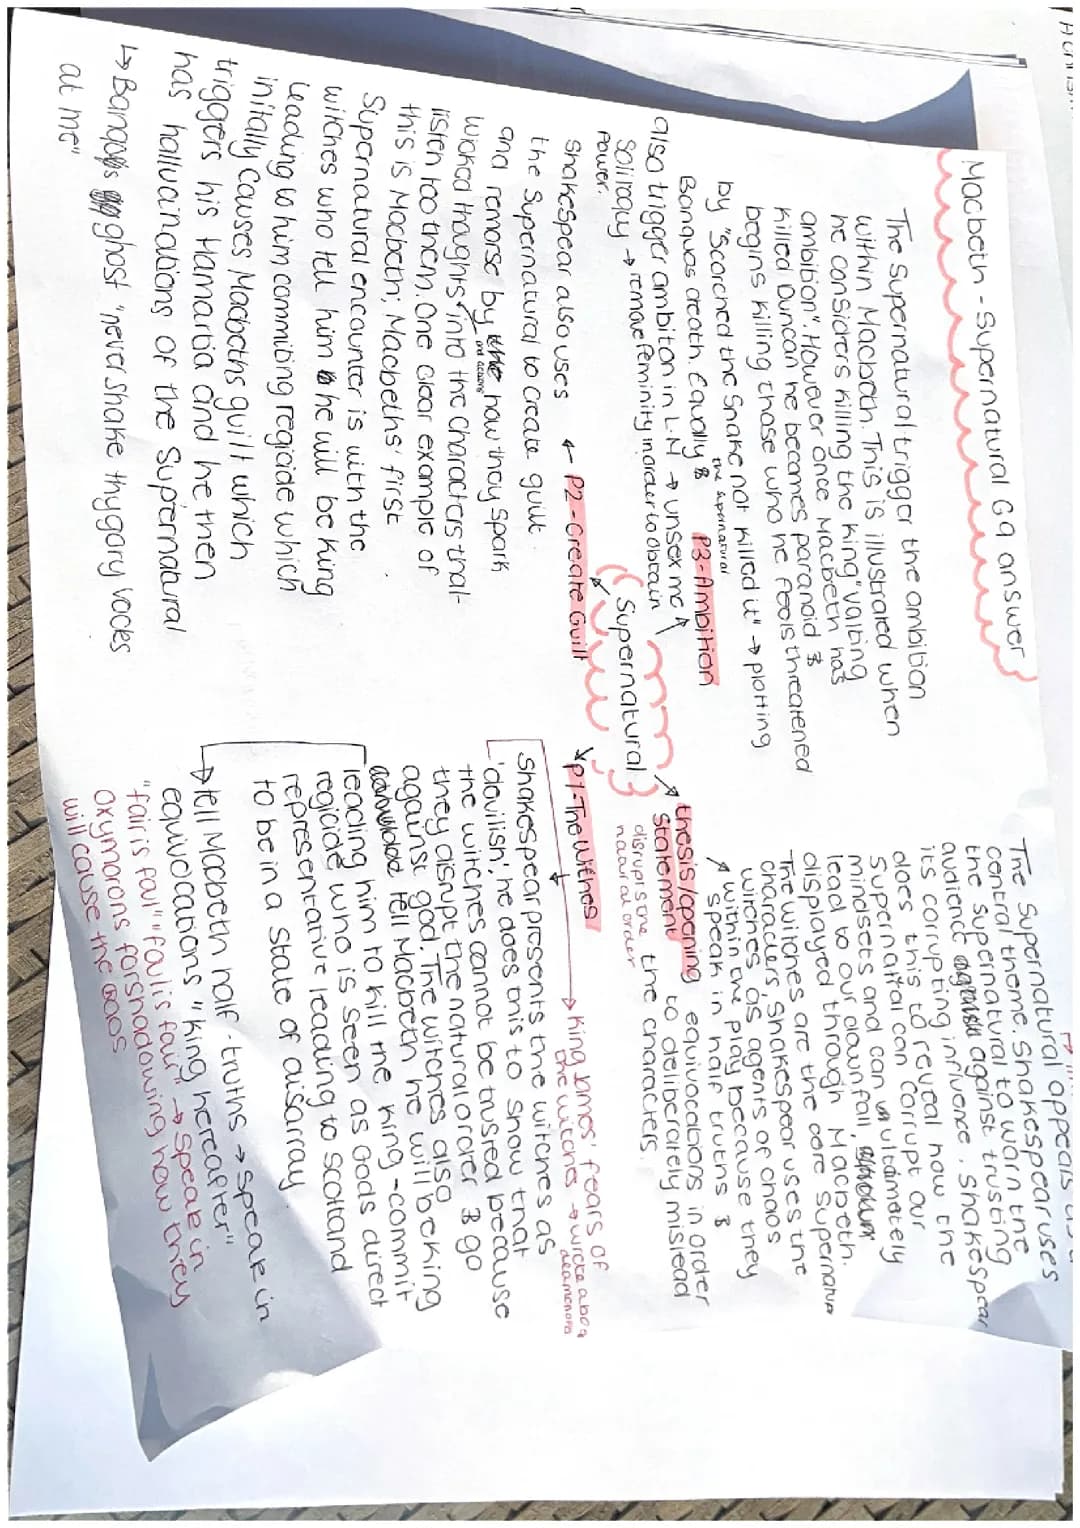 Macbeth - Supernatural G9 answer
The Supernatural appears as a
central theme. Shakespear uses
the supernatural to warn the
audience against trusting
its corrupting influence. Shakespear
does this to reveal how the
supernatural can corrupt our
mindsets and can ultamately
lead to our downfall,
displayed through Macbeth.
The witches are the core supernatural
characters, Shakespear uses the
witches as agents of chaos
within the play because they
speak in half truths &
equivocations in order
to deliberately mislead
the characters.
thesis/opening
statement
disrupts the
natural order
Supernatural
P1-The witches
King James' fears of
the witches → wrote a book
Shakespear presents the witches as
'devilish', he does this to show that
the witches cannot be trusted because
they disrupt the natural order & go
against god. The witches also
tell Macbeth he will be king
leading him to kill the king - commit
regicide who is seen as Gods direct
representative leading to scotland
to be in a state of disarray
↳ tell Macbeth half-truths → speak in
equivocations "king hereafter"
"fair is foul" "foul is fair" → speak in
oxymorons forshadowing how they
will cause the caos
P2 - Create Guilt
Shakespear also uses
the supernatural to create guilt
and remorse by how they spark
wicked thoughts and actions into the characters that
listen too them. One clear example of
this is Macbeth; Macbeths' first
supernatural encounter is with the
witches who tell him he will be king
leading to him commiting regicide which
initally causes Macbeths guilt which
triggers his Hamartia and he then
has hallucinations of the supernatural
↳ Banquos ghost "never shake thy gary locks
at me"
P3-Ambition
The supernatural trigger the ambition
within Macbeth. This is illustrated when
he considers killing the king "valting
ambition". However once Macbeth has
killed Duncan he becomes paranoid &
begins killing those who he feels threatened
by "scorched the snake not killed it" → plotting
Banquos death. Equally the supernatural
also trigger ambiton in L.M → unsex me
Soliloquy → remove feminity in order to obtain
power.